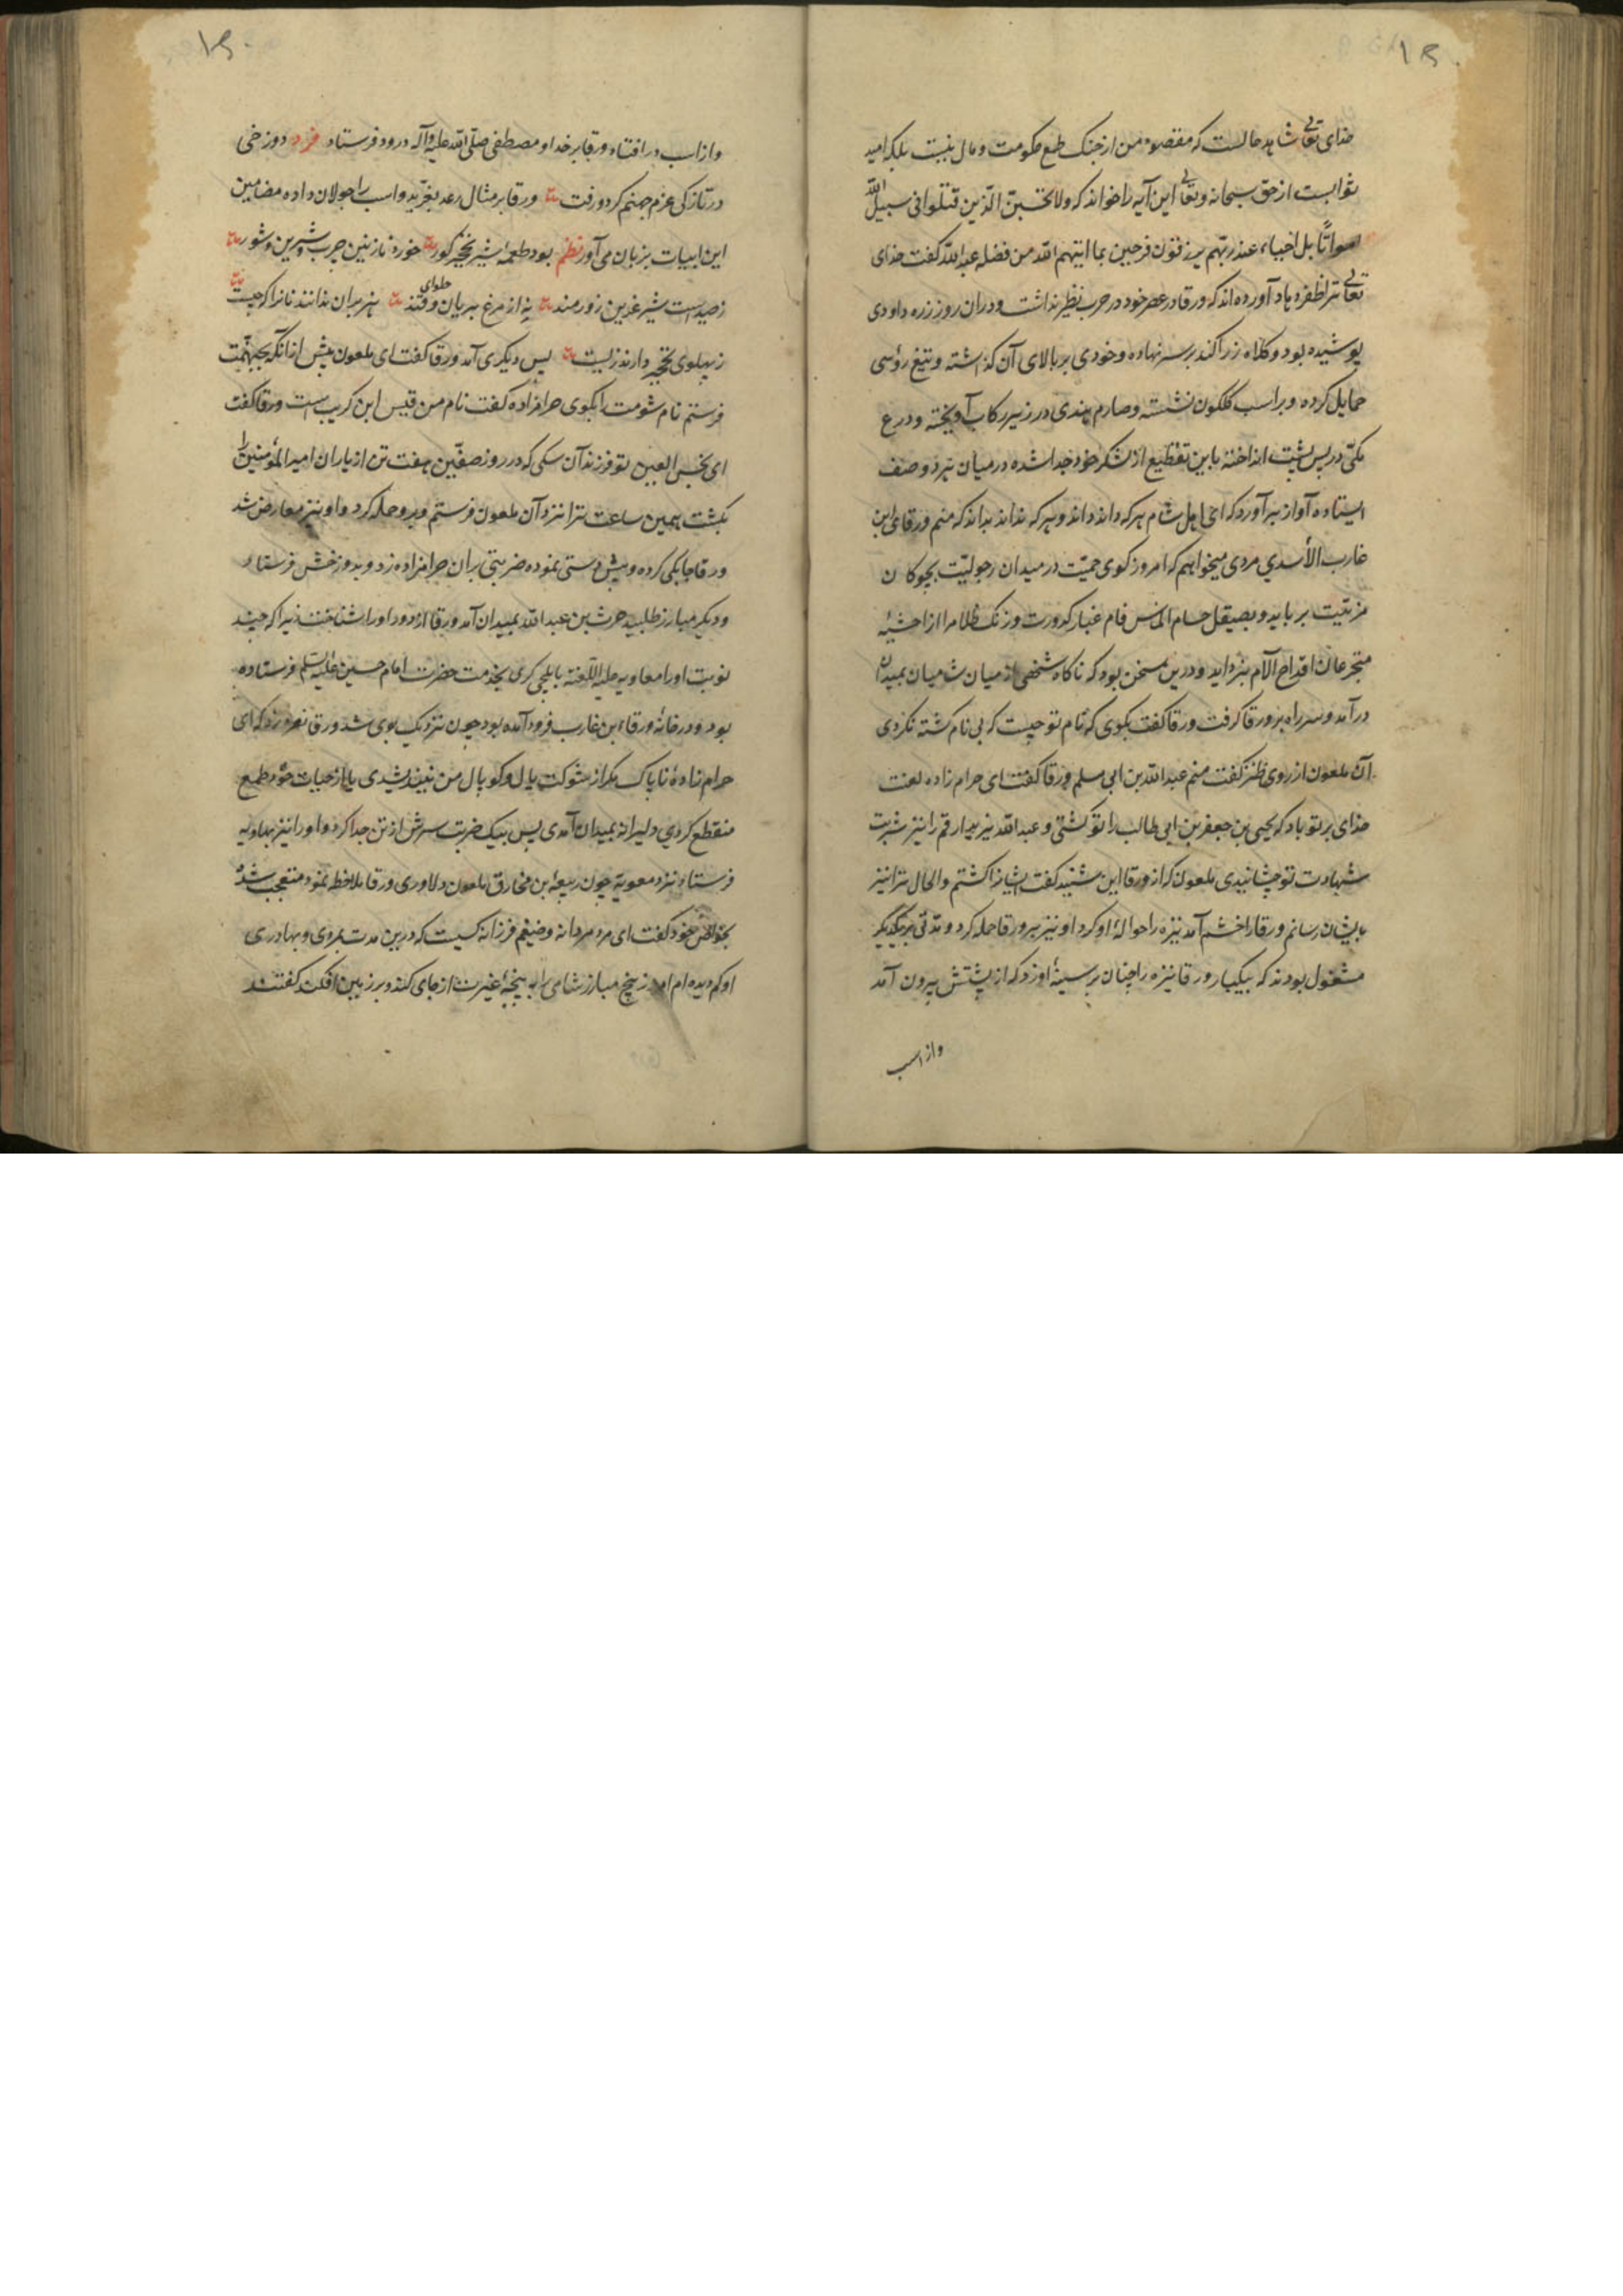 خدای تعالی شاهد حالست که مقصود من از جنک طمع حکومت و مال نیست بلکه امید
ثوابست از حق سبحانه و تعالی این آیه را خواند که ولا تحسبن الذین قتلوا فی سبیل الله
امواتا بل احیاء عند ربهم یرزقون فرحین بما اتیهم الله من فضله عبد الله کفت خدای
تعالی ترا ظفر دهاد آورده اند که ورقا در عصر خود در حرب نظیر نداشت و دران روز زره داودی
پوشیده بود و کلاه زراکند بر سر نهاده و خودی بر بالای آن کذاشته و تیغ روسی
حمایل کرده و بر اسب کلکون نشسته و صارم هندی در زیر رکاب آویخته و درع
مکی در پس پشت انداخته باین تقطیع از لشکر خود جدا شده در میان هر دو صف
ایستاده آواز برآورد که ای اهل شام هر که داند داند و هر که نداند بداند که منم ورقای ابن
غارب الاسدی مردی میخواهم که امروز کوی حمیت در میدان رجولیت بچوکان
مزیت برباید و بصیقل حسام الماس فام غبار کدورت و زنک ظلام را از احشیه
متجرعان اقداح الآم بزداید و درین سخن بود که ناکاه شخصی از میان شامیان بمیدان
درآمد و سر راه بر ورقا کرفت ورقا کفت بکوی که نام تو چیست که بی نام کشته نکردی
آن ملعون از روی طنز کفت منم عبد الله بن ابی مسلم ورقا کفت ای حرام زاده لعنت
خدای بر تو باد که یحیی بن جعفر بن ابی طالب را تو کشتی و عبد الله نیز ارقم را نیز شربت
شهادت تو چشانیدی ملعون که از ورقا این شنید کفت ایشانرا کشتم و الحال ترا نیز
بایشان رسانم ورقا را خشم آمد نیزه را حوالهٔ او کرد او نیز بر ورقا حمله کرد و مدتی بر یکدیکر
مشغول بودند که بیکبار ورقا نیزه را چنان بر سینهٔ او زد که از پشتش بیرون آمد
واز اسب
واز اسب در افتاد ورقا بر خدا و مصطفی صلی الله علیه وآله درود فرستاد فرد دوزخی
در تازکی عزم جهنم کرد و رفت ورقا بر مثال رعد بغرید و اسب را جولان داده مضامین
این ابیات بر زبان می آورد نظم بود طعمهٔ شیر نخجیر کور خورد نازنین چرب و شیرین و شور
ز صیداست شیر عرین زورمند نه از مرغ بریان و حلوای قند هژبران ندانند نانرا که چیست
ز پهلوی نخجیر دارند زیست پس دیکری آمد ورقا کفت ای ملعون پیش ازانکه بجهنمت
فرستم نام شومت را بکوی حرامزاده کفت نام من قیس ابن کریب است ورقا کفت
ای نجس العین تو فرزند آن سکی که در روز صفین هفت تن از یاران امیر المؤمنین را
بکشت همین ساعت ترا نزد آن ملعون فرستم و برو حمله کرد و او نیز معارض شد
ورقا چابکی کرده و پیش دستی نموده ضربتی بران حرامزاده زد و بدوزخش فرستاد
و دیکر مبارز طلبید حرث بن عبد الله بمیدان آمد ورقا از دور او را شناخت زیرا که چند
نوبت او را معاویه علیه اللعنه بایلچی کری بخدمت حضرت امام حسین علیه السلم فرستاده
بود و در خانهٔ ورقاء ابن غارب فرود آمده بود چون نزدیک بوی شد ورقا نعره زد که ای
حرام زادهٔ ناپاک مکر از شوکت یال و کوپال من نیندیشیدی یا از حیات خود طمع
منقطع کردی دلیرانه بمیدان آمدی پس بیک ضربت سرش از تن جدا کرد و او را نیز بهاویه
فرستاد نزد معویه چون ربیعه ابن مخارق ملعون دلاوری ورقا ملاحظه نمود متعجب شد
بخواص خود کفت ای مرد مردانه و ضیغم فرزانه کیست که درین مدت بمردی و بهادری
او کم دیده ام امروز پنج مبارز شامی را به پنجهٔ غیرت از جای کند و بر زمین افکند کفتند